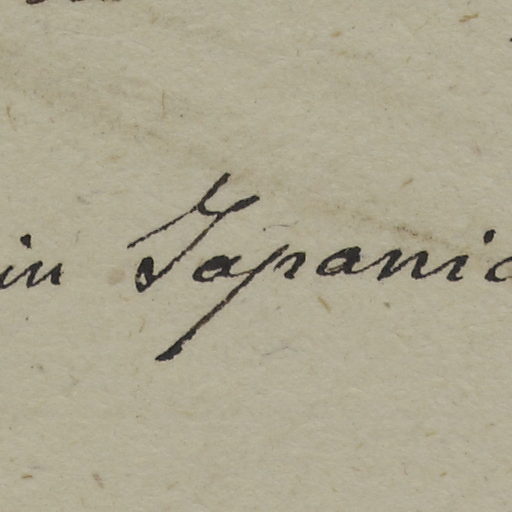 in Japanic